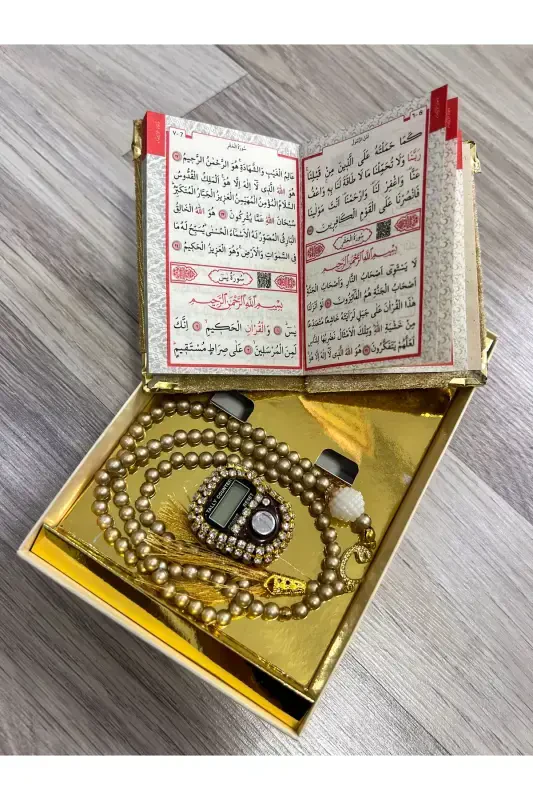 كَمَا حَمَلْتَهُ عَلَى الَّذِينَ مِنْ قَبْلِنَا
رَبَّنَا وَلَا تُحَمِّلْنَا مَا لَا طَاقَةَ لَنَا بِهِ وَاعْفُ
عَنَّا وَاغْفِرْ لَنَا وَارْحَمْنَا اَنْتَ مَوْلٰينَا
فَانْصُرْنَا عَلَى الْقَوْمِ الْكَافِرِينَ
سُورَةُ الْحَشْرِ
بِسْمِ اللّٰهِ الرَّحْمٰنِ الرَّحِيمِ
لَا يَسْتَوِى اَصْحَابُ النَّارِ وَاَصْحَابُ الْجَنَّةِ
اَصْحَابُ الْجَنَّةِ هُمُ الْفَائِزُونَ لَوْ اَنْزَلْنَا
هٰذَا الْقُرْاٰنَ عَلٰى جَبَلٍ لَرَاَيْتَهُ خَاشِعًا مُتَصَدِّعًا
مِنْ خَشْيَةِ اللّٰهِ وَتِلْكَ الْاَمْثَالُ نَضْرِبُهَا لِلنَّاسِ
لَعَلَّهُمْ يَتَفَكَّرُونَ هُوَ اللّٰهُ الَّذِى لَا اِلٰهَ اِلَّا هُوَ
سُورَةُ الْحَشْرِ
عَالِمُ الْغَيْبِ وَالشَّهَادَةِ هُوَ الرَّحْمٰنُ الرَّحِيمُ
هُوَ اللّٰهُ الَّذِى لَا اِلٰهَ اِلَّا هُوَ اَلْمَلِكُ الْقُدُّوسُ
السَّلَامُ الْمُؤْمِنُ الْمُهَيْمِنُ الْعَزِيزُ الْجَبَّارُ الْمُتَكَبِّرُ
سُبْحَانَ اللّٰهِ عَمَّا يُشْرِكُونَ هُوَ اللّٰهُ الْخَالِقُ
الْبَارِئُ الْمُصَوِّرُ لَهُ الْاَسْمَاءُ الْحُسْنٰى يُسَبِّحُ لَهُ مَا
فِى السَّمٰوَاتِ وَالْاَرْضِ وَهُوَ الْعَزِيزُ الْحَكِيمُ
سُورَةُ يٰسٓ
بِسْمِ اللّٰهِ الرَّحْمٰنِ الرَّحِيمِ
يٰسٓ وَالْقُرْاٰنِ الْحَكِيمِ اِنَّكَ
لَمِنَ الْمُرْسَلِينَ عَلٰى صِرَاطٍ مُسْتَقِيمٍ
TALLY COUNTER